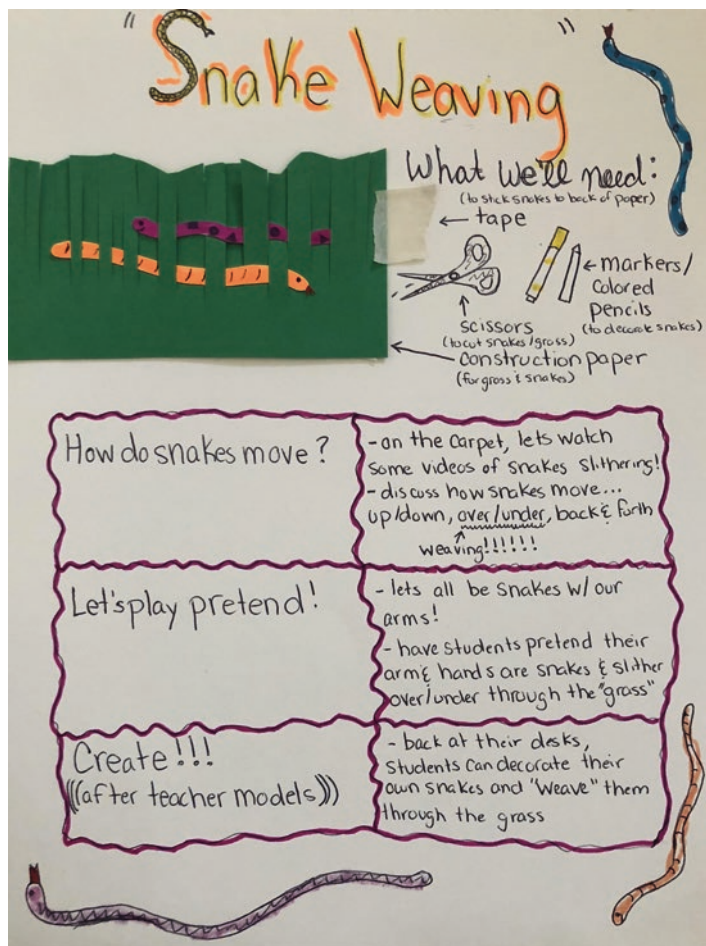 "Snake Weaving"
What we'll need:
(to stick snakes to back of paper)
← tape
scissors
(to cut snakes/grass)
← markers/
colored
pencils
(to decorate snakes)
construction paper
(for grass & snakes)
How do snakes move?
- on the carpet, lets watch
some videos of snakes slithering!
- discuss how snakes move...
up/down, over/under, back & forth
weaving!!!!!!
Let's play pretend!
- lets all be snakes w/ our
arms!
- have students pretend their
arm & hands are snakes & slither
over/under through the "grass"
Create!!!
(((after teacher models)))
- back at their desks,
students can decorate their
own snakes and "weave" them
through the grass